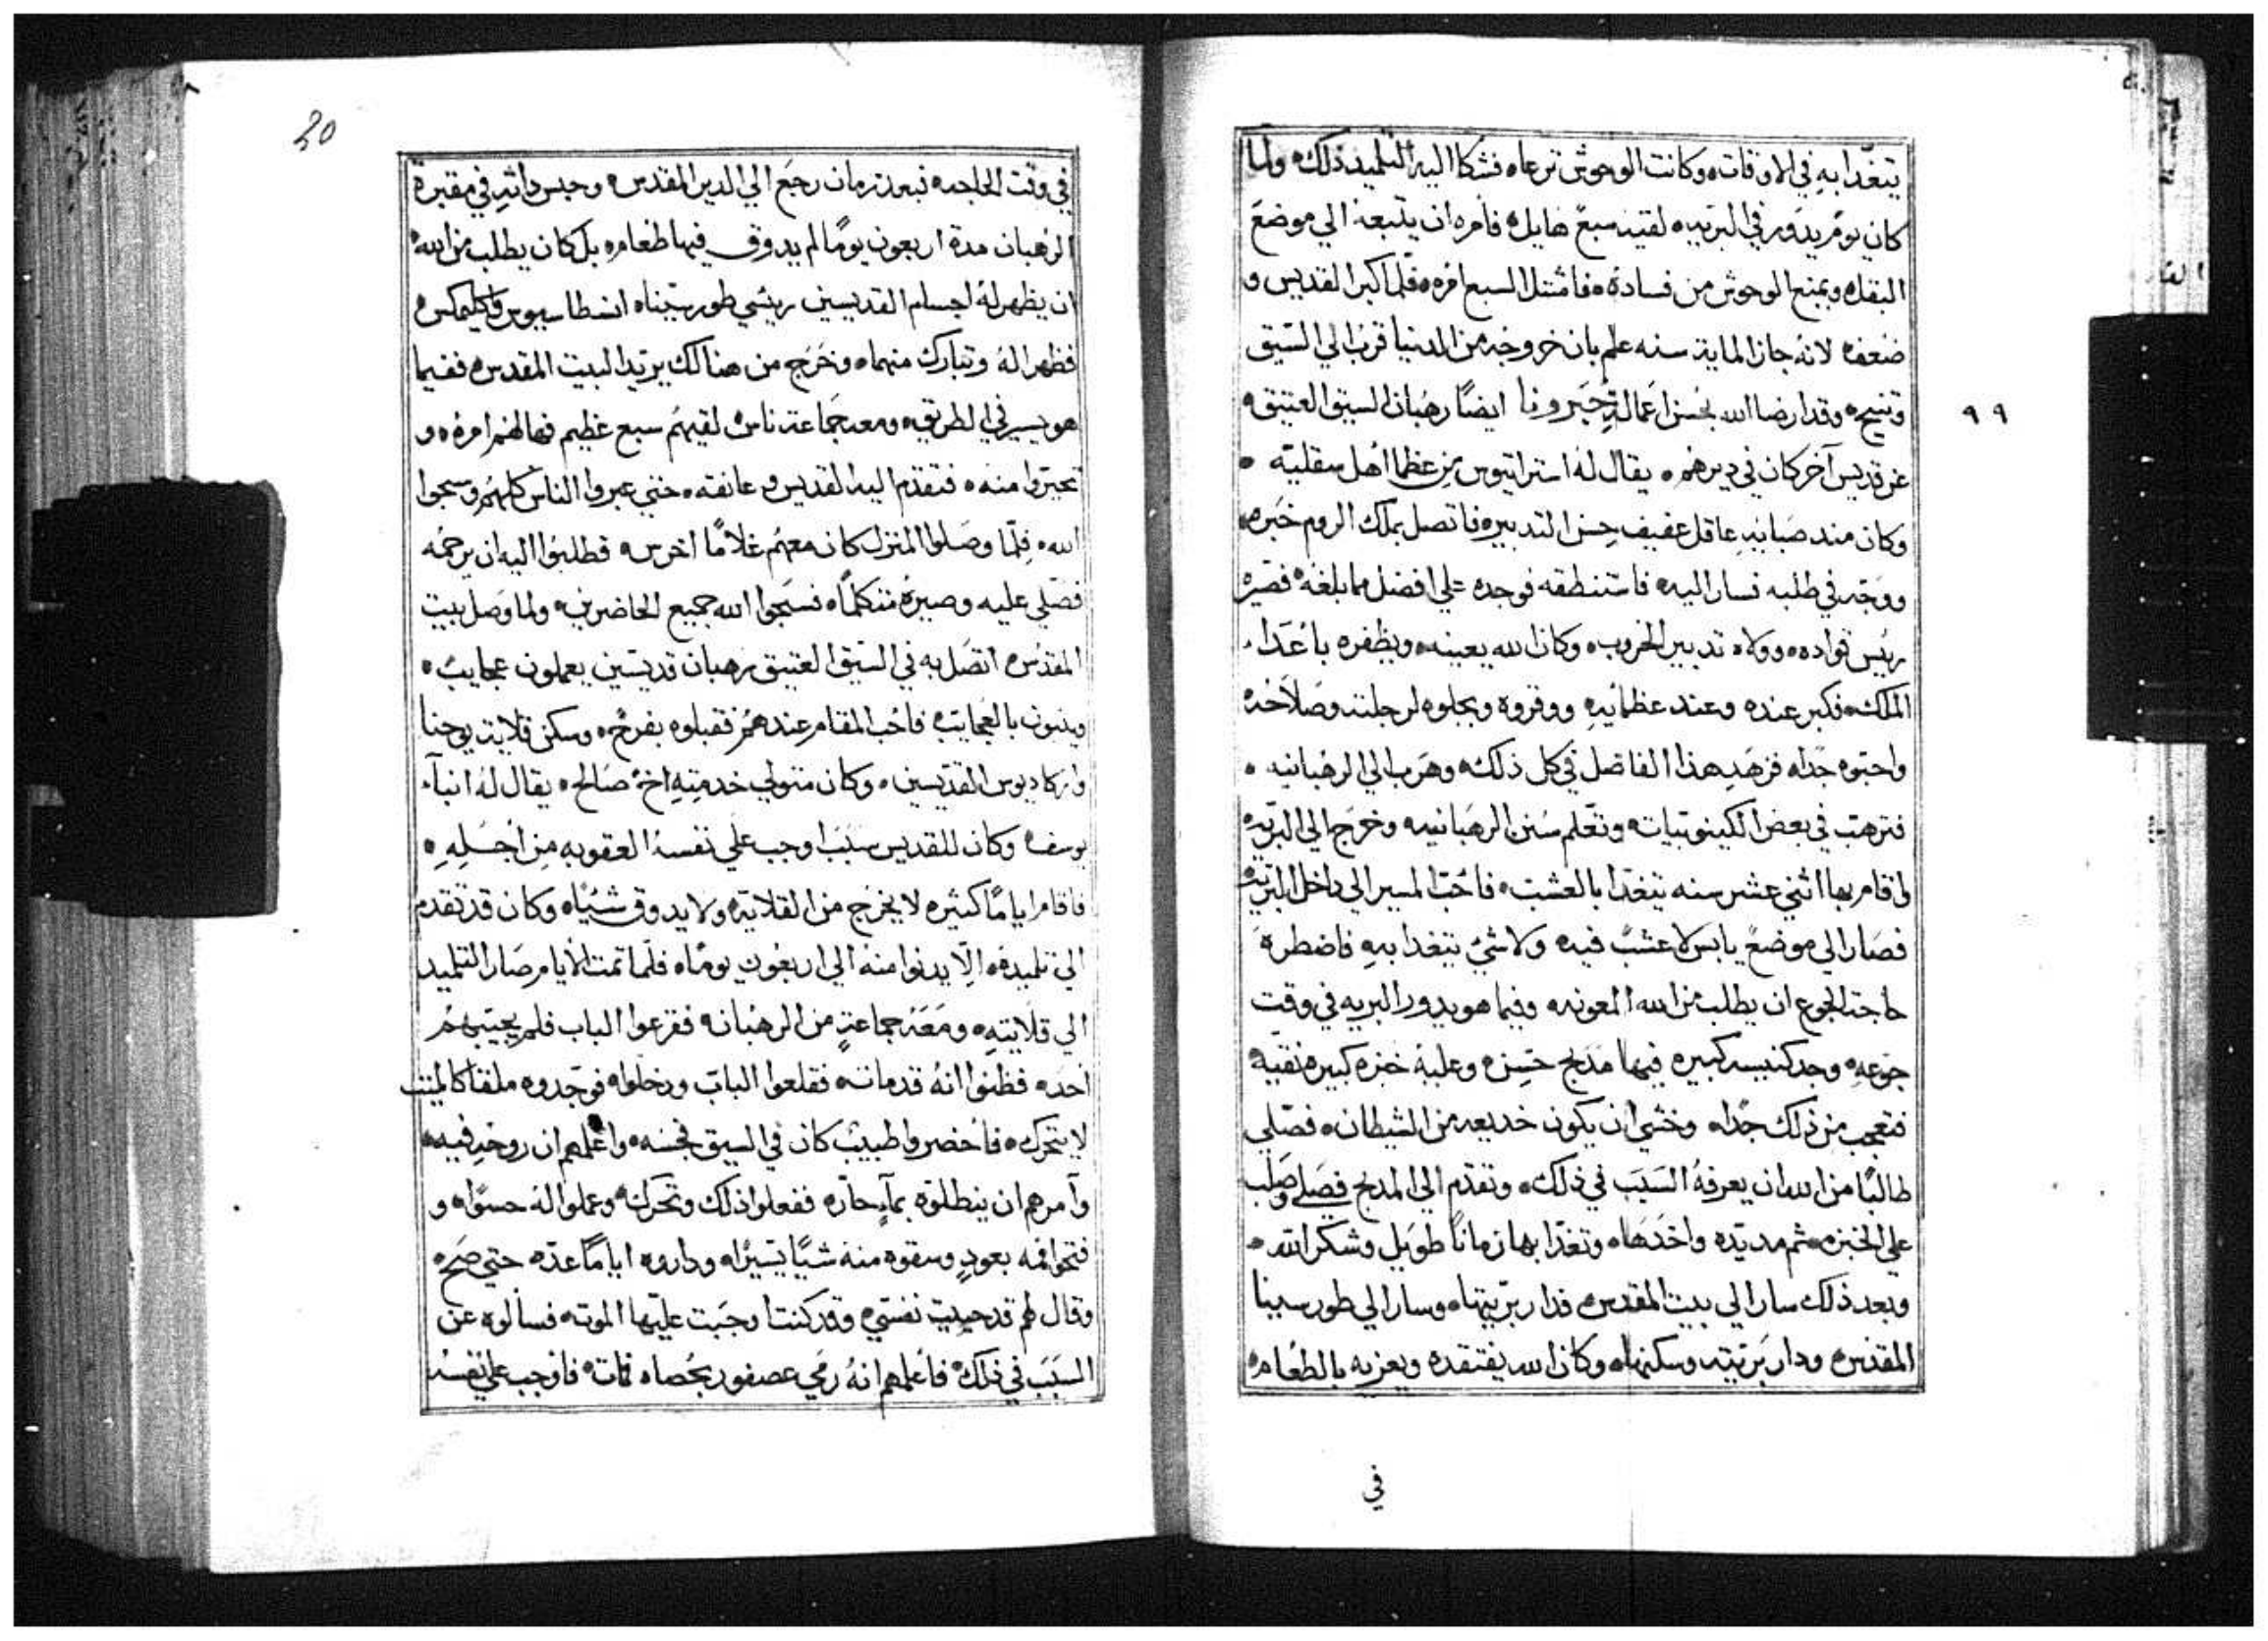 يتغدا به في الاوقات ٥ وكانت الوحوش ترعاه فشكا اليه التلميذ ذلك ٥ ولما
كان يوم يدور في البريه ٥ لقيه سبع هايل ٥ فامره ان يتبعه الي موضع
البقل ٥ ويمنع الوحوش من فساده ٥ فامتثل السبع امره ٥ فلما كبر القديس و
ضعف ٥ لانه جاز الماية سنه علم بان خروجه من الدنيا قرب الي السيق
وتنيح ٥ وقد ارضا الله بحسن اعماله خبرونا ايضًا رهبان السيق العتيق ٥
عن قديس آخر كان في ديرهم ٥ يقال له استراتيوس من عظما اهل سقلية ٥
وكان مند صبايه عاقل عفيف حسن التدبير ٥ فاتصل بملك الروم خبره ٥
ووجه في طلبه فسار اليه ٥ فاستنطقه فوجده علي افضل مما بلغه ٥ فصيره
رييس قواده ٥ وولاه تدبير الحروب ٥ وكان الله يعينه ٥ ويظفره باعداء
الملك ٥ فكبر عنده وعند عظمايه ووقروه وبجلوه لرجلته وصلاحه
واحبوه جدًا ٥ فزهد هذا الفاضل في كل ذلك ٥ وهرب الي الرهبانيه ٥
فترهب في بعض الكينوبيات ٥ وتعلم سنن الرهبانيه وخرج الي البريه ٥
واقام بها اثني عشر سنه يتغدا بالعشب ٥ فاحب المسير الي داخل البريه
فصار الي موضع يابس لا عشب فيه ٥ ولا شي يتغدا به فاضطره
حاجت الجوع ان يطلب من الله المعونه ٥ وفيما هو يدور البريه في وقت
جوعه ٥ وجد كنيسه كبيره فيها مدبح حسن ٥ وعليه خبزه كبيره نقيه ٥
فتعجب من ذلك جدًا ٥ وخشي ان يكون خديعه من الشيطان ٥ فصلي
طالبًا من الله ان يعرفه السبب في ذلك ٥ وتقدم الي المدبح فصلي وصلب
علي الخبزه ٥ ثم مد يده واخدها ٥ وتغدا بها زمانًا طويل وشكر الله ٥
وبعد ذلك سار الي بيت المقدس ٥ فدار بريتها ٥ وسار الي طور سينا
المقدس ٥ ودار بريته وسكنها ٥ وكان الله يفتقده ويعزيه بالطعام ٥
في
٩٩
20
في وقت الحاجه ٥ فبعد زمان رجع الي الدير المقدس ٥ وحبس داته في مقبرة
الرهبان مدة اربعون يومًا لم يدوق فيها طعام ٥ بل كان يطلب من الله ٥
ان يظهر له اجسام القديسين رييسي طور سينا ٥ انسطاسيوس واكليمكس ٥
فظهرا له وتبارك منهما ٥ وخرج من هنالك يريد البيت المقدس ٥ ففيما
هو يسير في الطريق ٥ ومعه جماعة ناس لقيهم سبع عظيم فهالهم امره ٥ و
تحيروا منه ٥ فتقدم اليه القديس وعانقه ٥ حتي عبروا الناس كلهم وسبحوا
الله ٥ فلما وصلوا المنزل كان معهم غلامًا اخرس ٥ فطلبوا اليه ان يرحمه
فصلي عليه وصيره متكلمًا ٥ فسبحوا الله جميع الحاضرين ٥ ولما وصل بيت
المقدس ٥ اتصل به في السيق العتيق رهبان قديسين يعملون عجايب ٥
وينبون بالعجايب ٥ فاحب المقام عندهم فقبلوه بفرح ٥ وسكن قلاية يوحنا
واركاديوس القديسين ٥ وكان متولي خدمته اخ صالح ٥ يقال له انباء
يوسف ٥ وكان للقديس سببًا وجب علي نفسه العقوبه من اجله ٥
فاقام ايامًا كثيره لا يخرج من القلايه ٥ ولا يدوق شيًا ٥ وكان قد تقدم
الي تلميده ٥ الا يدنوا منه الي اربعون يومًا ٥ فلما تمت الايام صار التلميد
الي قلايته ٥ ومعه جماعةٍ من الرهبان ٥ فقرعوا الباب فلم يجيبهم
احد ٥ فظنوا انه قد مات ٥ فقلعوا الباب ودخلوا ٥ فوجدوه ملقا كالميت
لا يتحرك ٥ فاحضروا طبيب كان في السيق فجسه ٥ واعلمهم ان روحه فيه ٥
وآمرهم ان ينطلوه بمآءٍ حاره ففعلوا ذلك وتحرك ٥ وعملوا له حسوًا ٥ و
فتحوا فمه بعودٍ وسقوه منه شيًا يسيرًا ٥ وداروه ايامًا عده حتي صح ٥
وقال لهم قد حييت نفسي ٥ وقد كنت اوجبت عليها الموت ٥ فسالوه عن
السبب في ذلك ٥ فاعلمهم انه رمي عصفور بحصاه فمات ٥ فاوجب علي نفسه